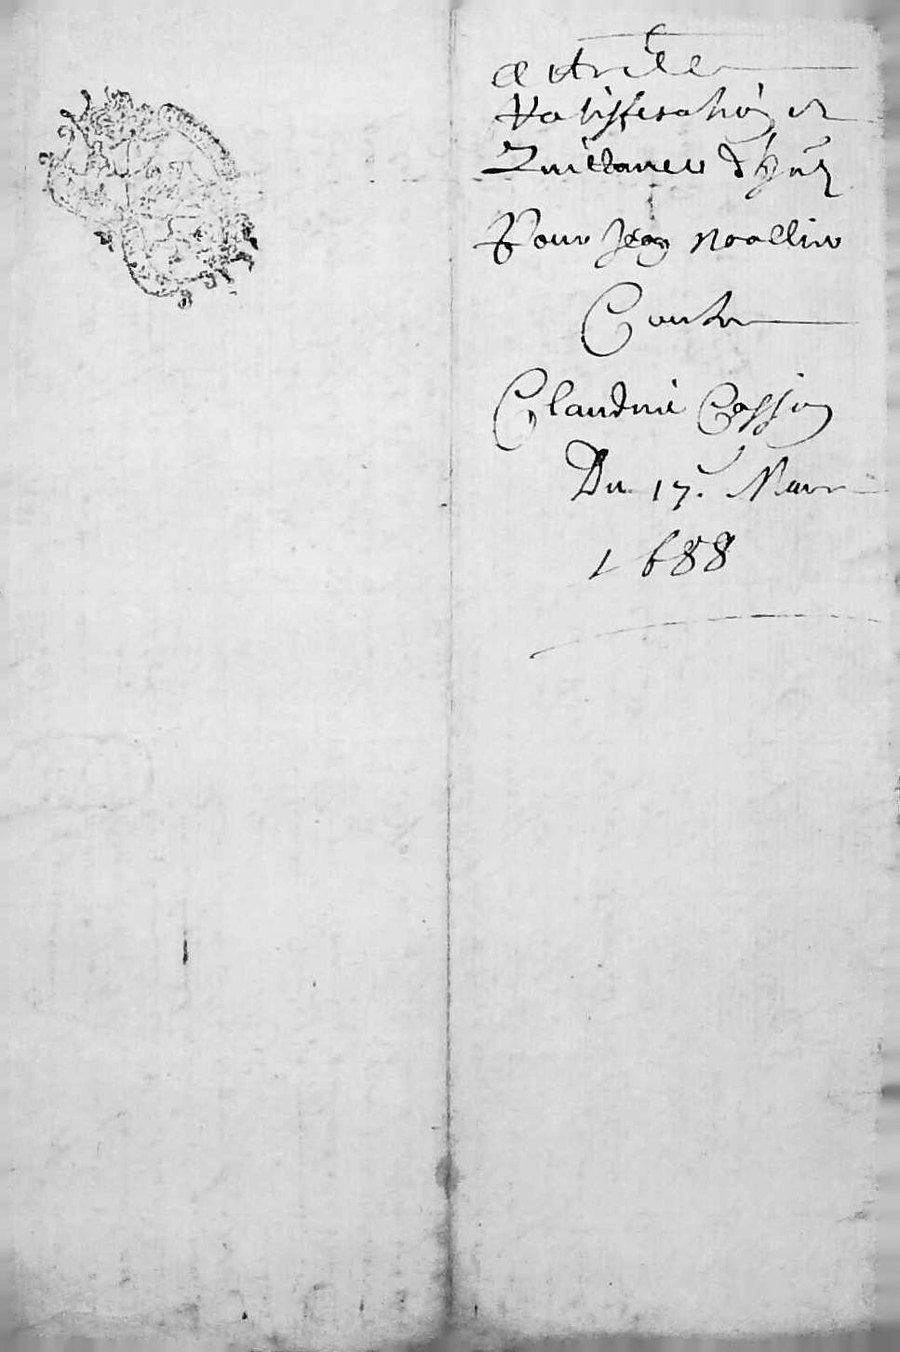 Ratiffication et
Quittance d'hyer
Pour Jean Noallin
Contre
Claudine Cassin
Du 17e Mars
1688